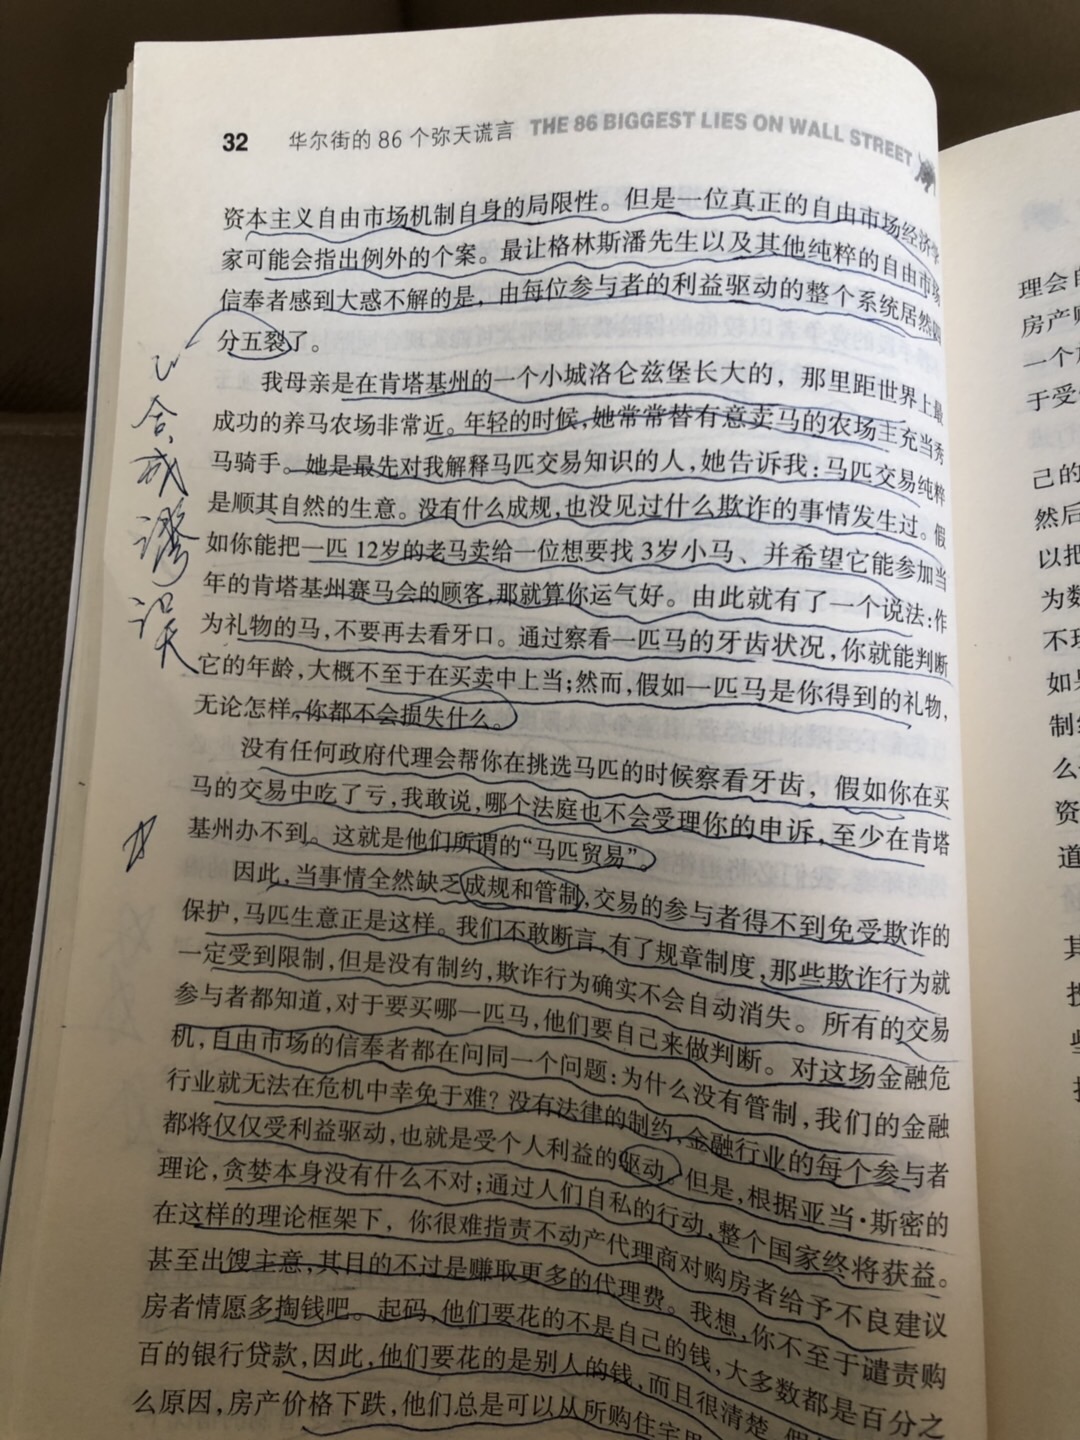 32 华尔街的86个弥天谎言 THE 86 BIGGEST LIES ON WALL STREET
资本主义自由市场机制自身的局限性。但是一位真正的自由市场经济学
家可能会指出例外的个案。最让格林斯潘先生以及其他纯粹的自由市场
信奉者感到大惑不解的是，由每位参与者的利益驱动的整个系统居然四
分五裂了。
我母亲是在肯塔基州的一个小城洛仑兹堡长大的，那里距世界上最
成功的养马农场非常近。年轻的时候，她常常替有意卖马的农场主充当秀
马骑手。她是最先对我解释马匹交易知识的人，她告诉我：马匹交易纯粹
是顺其自然的生意。没有什么成规，也没见过什么欺诈的事情发生过。假
如你能把一匹12岁的老马卖给一位想要找3岁小马、并希望它能参加当
年的肯塔基州赛马会的顾客，那就算你运气好。由此就有了一个说法：作
为礼物的马，不要再去看牙口。通过察看一匹马的牙齿状况，你就能判断
它的年龄，大概不至于在买卖中上当；然而，假如一匹马是你得到的礼物，
无论怎样，你都不会损失什么。
没有任何政府代理会帮你在挑选马匹的时候察看牙齿，假如你在买
马的交易中吃了亏，我敢说，哪个法庭也不会受理你的申诉，至少在肯塔
基州办不到。这就是他们所谓的“马匹贸易”。
因此，当事情全然缺乏成规和管制，交易的参与者得不到免受欺诈的
保护，马匹生意正是这样。我们不敢断言，有了规章制度，那些欺诈行为就
一定受到限制，但是没有制约，欺诈行为确实不会自动消失。所有的交易
参与者都知道，对于要买哪一匹马，他们要自己来做判断。对这场金融危
机，自由市场的信奉者都在问同一个问题：为什么没有管制，我们的金融
行业就无法在危机中幸免于难？没有法律的制约，金融行业的每个参与者
都将仅仅受利益驱动，也就是受个人利益的驱动。但是，根据亚当·斯密的
理论，贪婪本身没有什么不对；通过人们自私的行动，整个国家终将获益。
在这样的理论框架下，你很难指责不动产代理商对购房者给予不良建议
甚至出馊主意，其目的不过是赚取更多的代理费。我想，你不至于谴责购
房者情愿多掏钱吧。起码，他们要花的不是自己的钱，大多数都是百分之
百的银行贷款，因此，他们要花的是别人的钱，而且很清楚，假
么原因，房产价格下跌，他们总是可以从所购住宅里
合成谬误
理会
房产
一个
于受
己的
然后
以把
为数
不
如
制
么
资
道
其